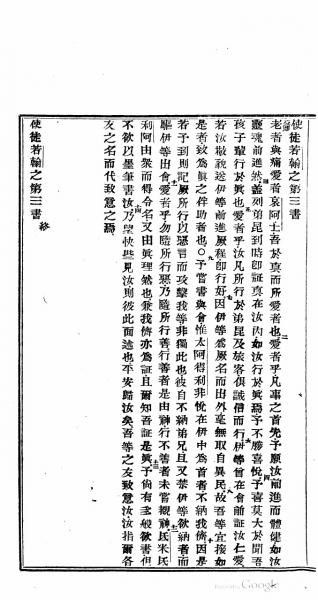 使徒若翰之第三書
老者與痛愛者哀阿士吾於真而所愛者也愛者乎凡事之首先予願汝前進而體健如汝
靈魂前進然蓋刻弟昆到時即証真在汝內如汝行於真焉予不勝喜悅予喜莫大於聞吾
孩子輩行於真也愛者乎汝凡所行於弟昆及旅客俱誠信而行伊等曾在會前証汝仁愛
若汝敬神送伊等前進厥程即行好因伊等為厥名而出外毫無取自異民故吾等宜接如
是者致為真之佐助者也○予嘗書與會惟太阿得利非悅在伊中為首者不納我儕因是
若予到則記厥所行以惡言而攻擊我等非獨此也彼自不納弟兄且又禁伊欲納者而
驅伊等出會愛者乎勿隨所行惡乃隨所行善行善者是由神行不善者未嘗覩神氐米氐
利阿由衆而得令名又由真理然也兼我儕亦為証且爾知吾証是真予尚有多般欲書但
不欲以墨筆書汝乃望快些見汝則彼此面述也平安歸汝矣吾等之友致意汝汝指爾各
友之名而代致意之焉
使徒若翰之第三書 終
Digitized by Google